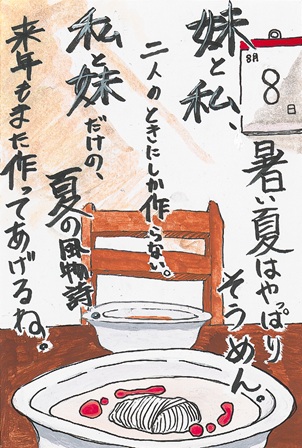 8月
8
妹と私、
暑い夏はやっぱり
そうめん。
二人のときにしか作らない。
私と妹だけの、
夏の風物詩。
来年もまた作ってあげるね。